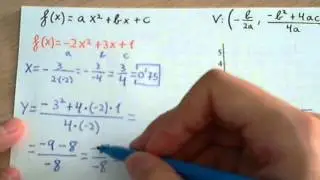 f(x) = ax² + bx + c
V: (-b/2a, -b²+4ac/4a
f(x) = -2x² + 3x + 1
a b c
X = - 3/2·(-2) = - 3/-4 = 3/4 = 0'75
5
4
3
Y = -3² + 4·(-2)·1/4·(-2) =
= -9 - 8/-8 = /-8